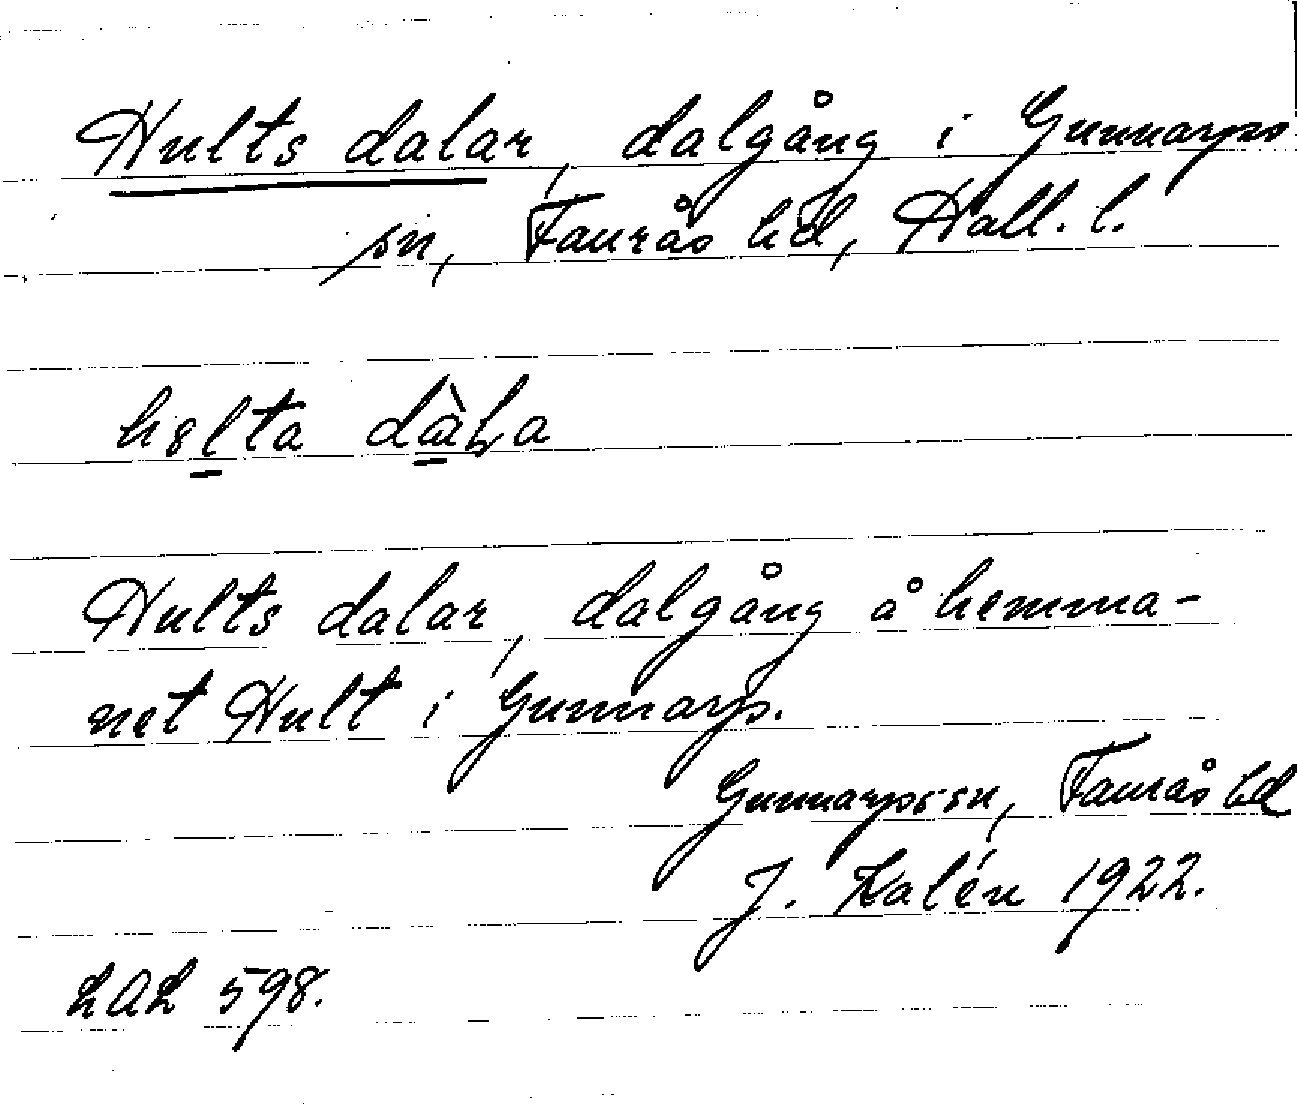 Hults dalar, dalgång i Gunnarps
sn, Faurås hd, Hall. l.
Hults dalar, dalgång å hemma-
net Hult i Gunnarp.
Gunnarps sn, Faurås hd
J. Kalén 1922.
LAL 598.